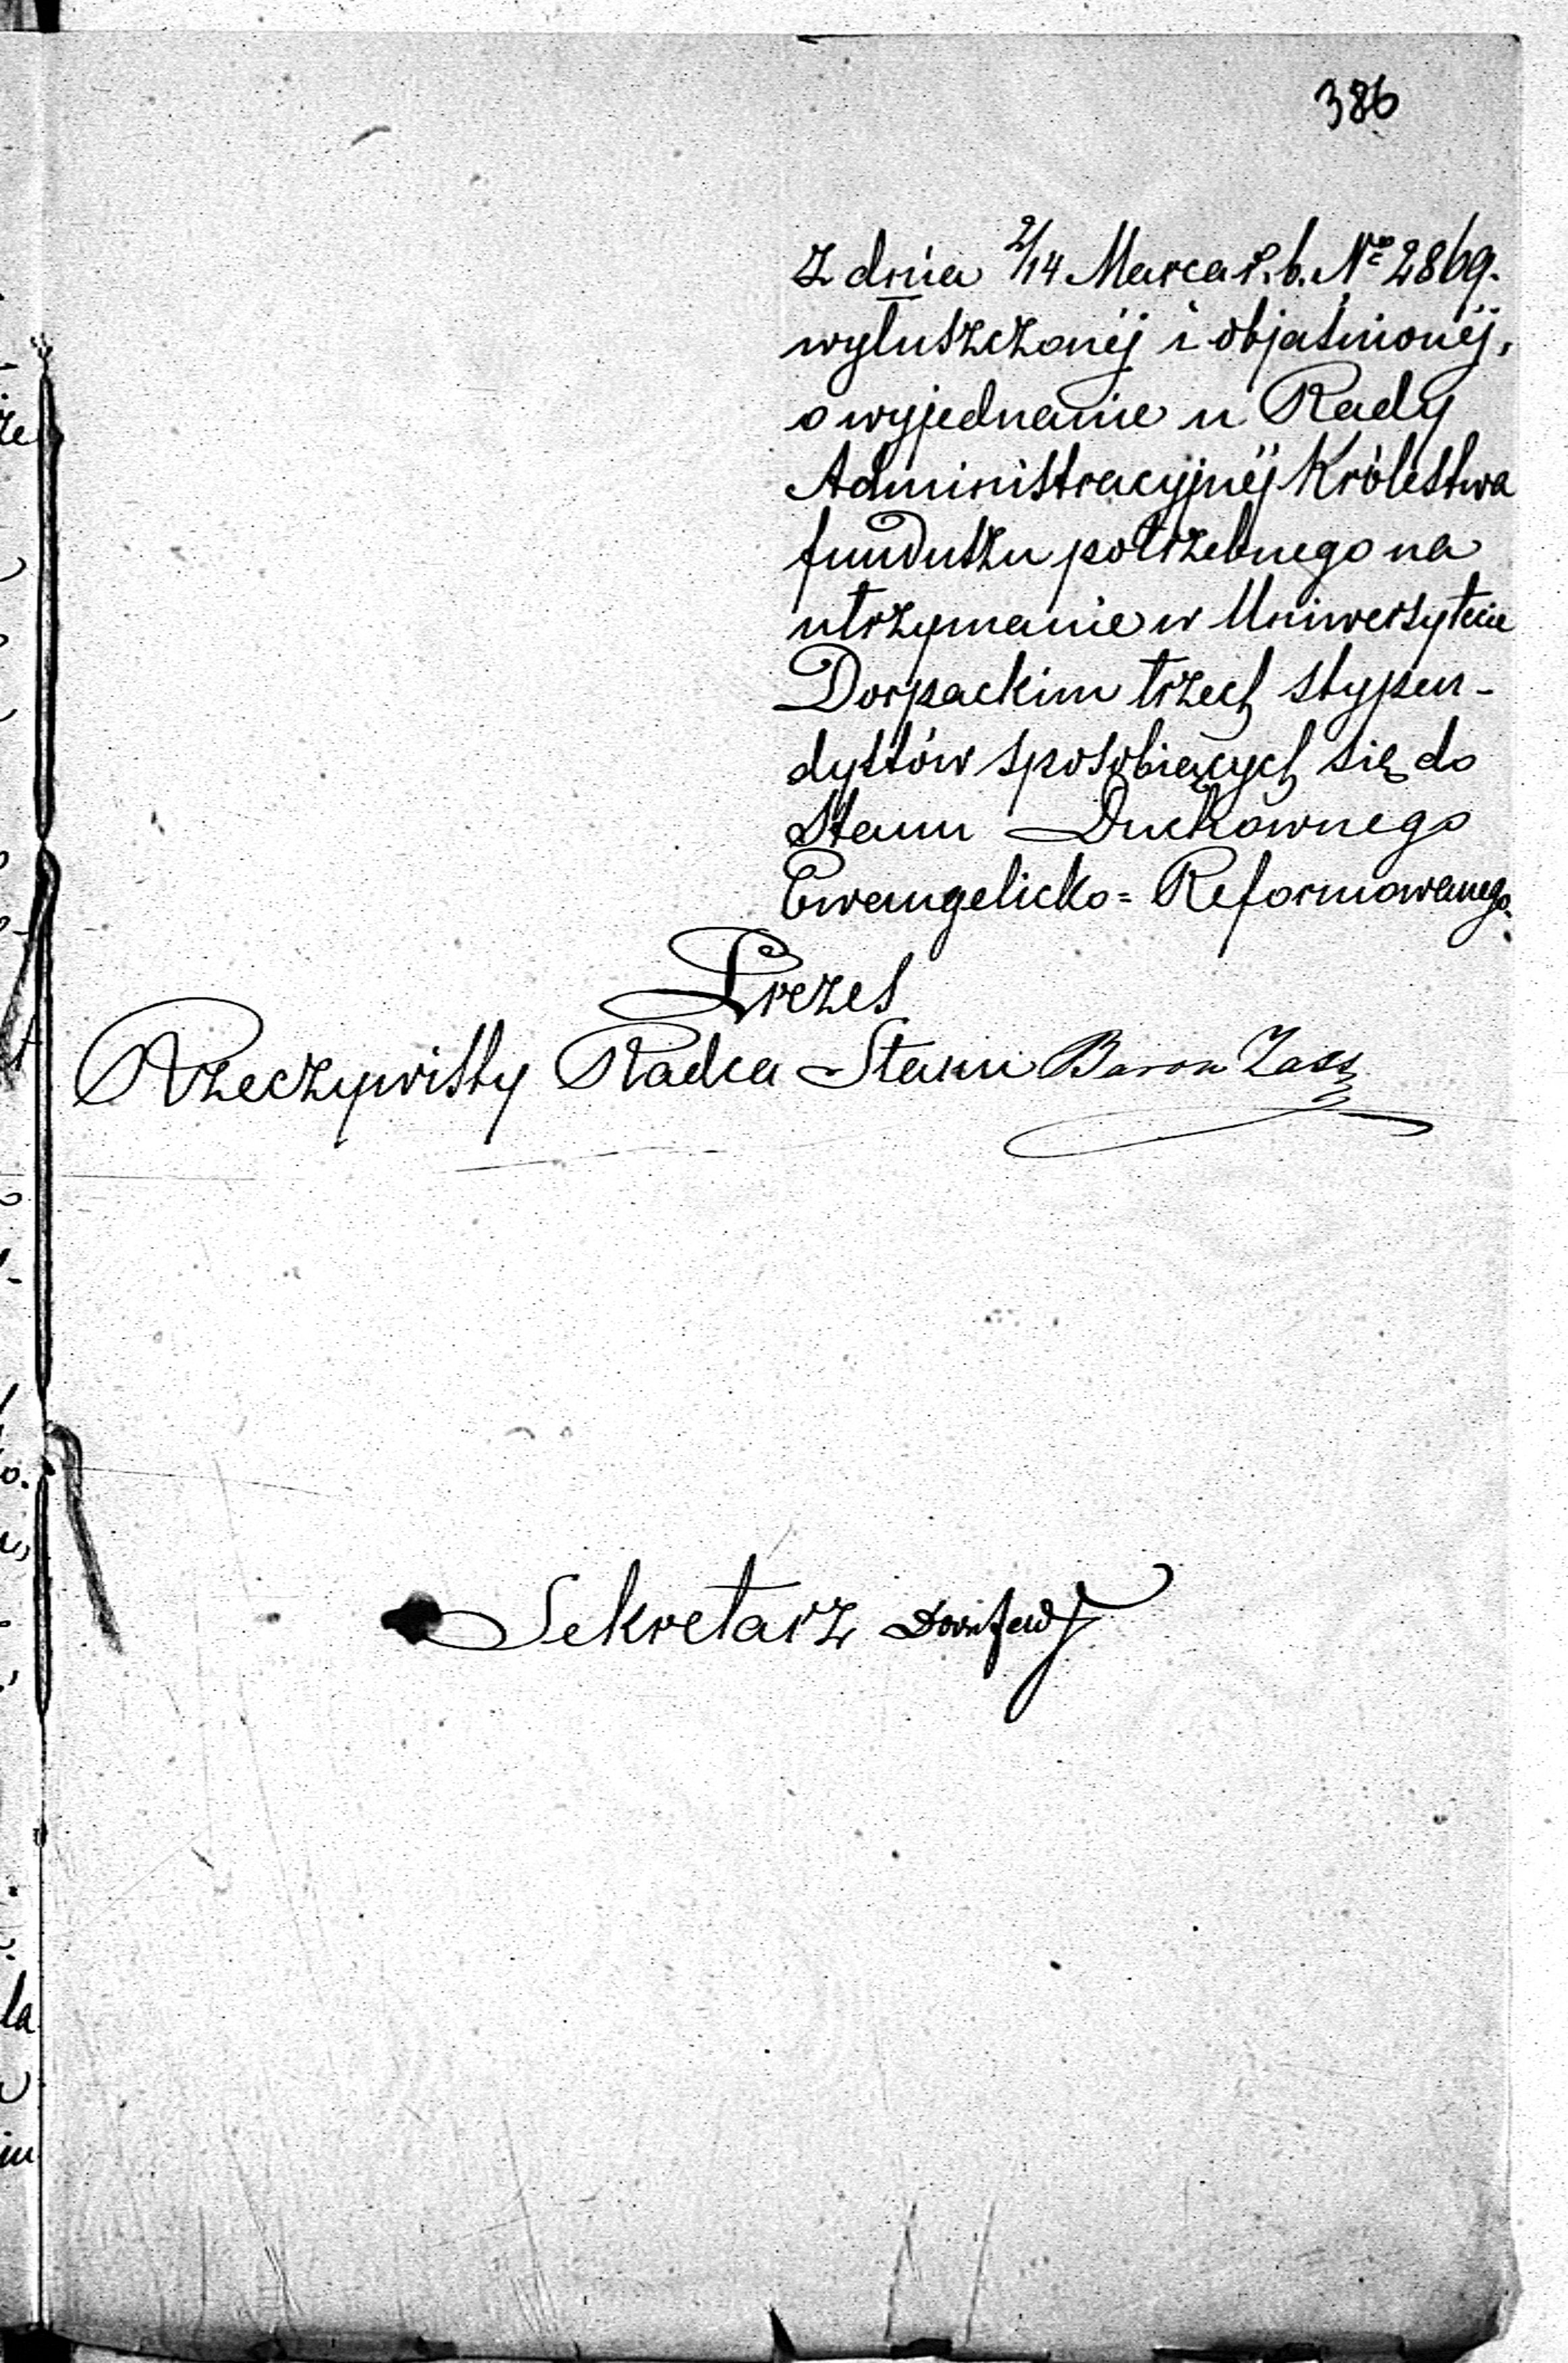 386
z dnia 2/14 Marca r. b. No 2869.
wyłuszczonéj i objaśnionéj,
o wyjednanie u Rady
Administracyjnéj Królestwa
funduszu potrzebnego na
utrzymanie w Uniwersytecie
Dorpackim trzech stypen-
dystów sposobiących się do
Stanu Duchownego
Ewangelicko=Reformowanego.
Prezes
Rzeczywisty Radca Stanu Baron
Sekretarz